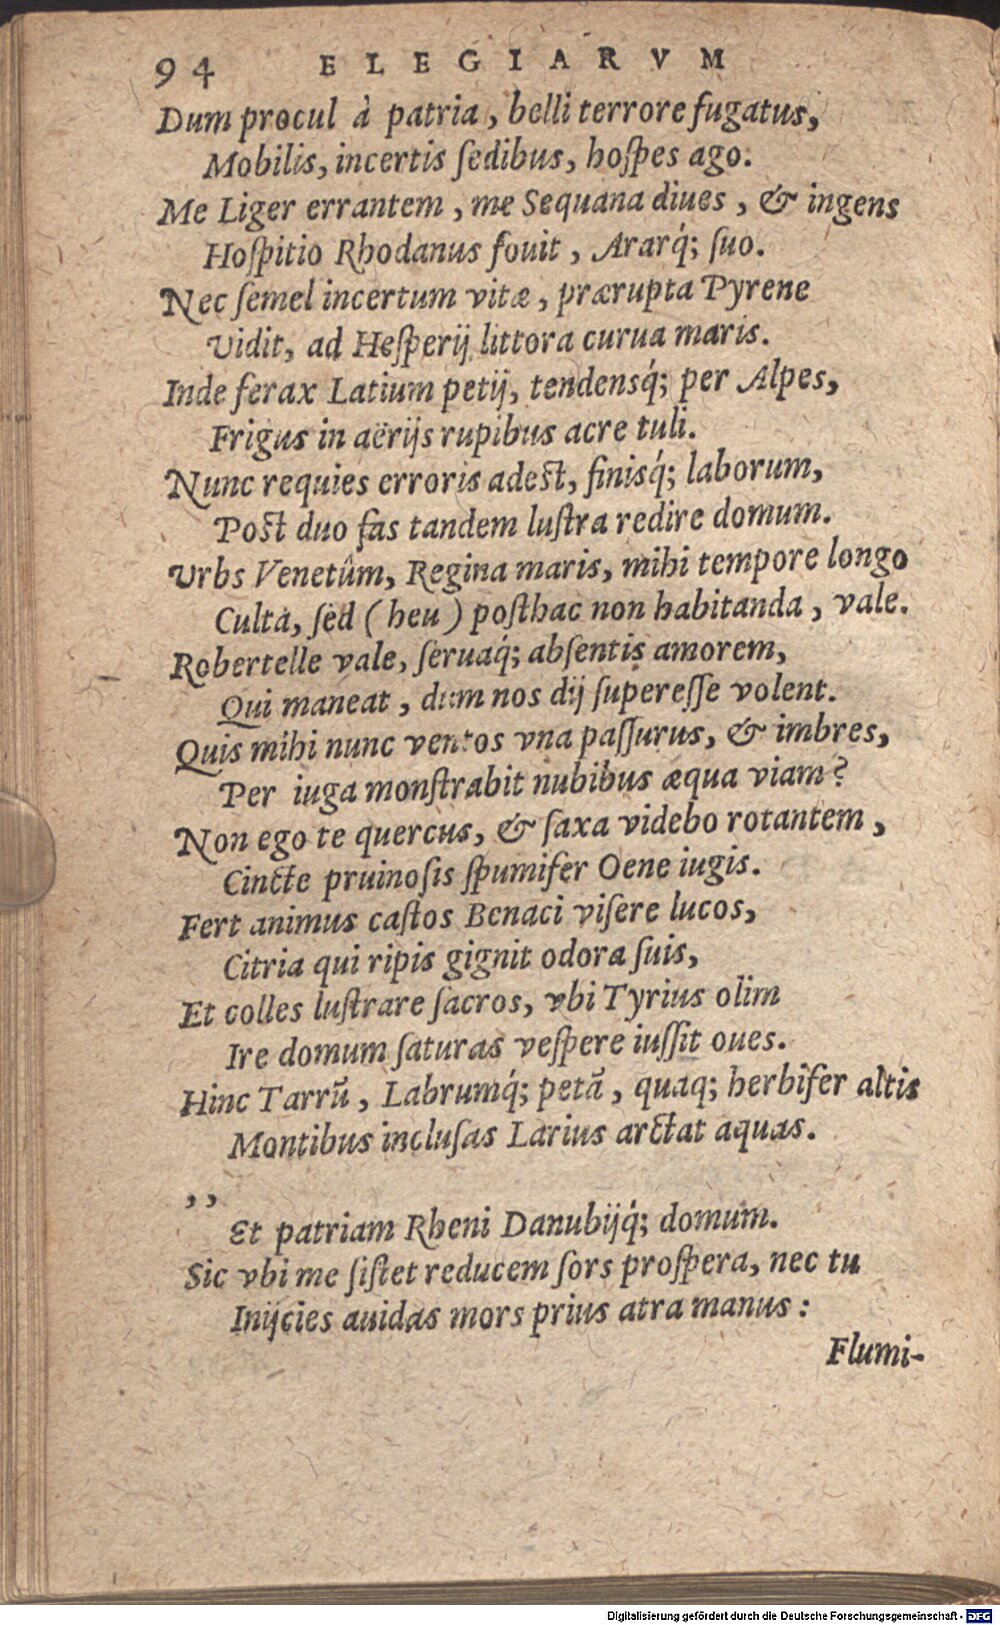 94 ELEGIARVM
Dum procul à patria, belli terrore fugatus,
Mobilis, incertis ſedibus, hoſpes ago.
Me Liger errantem, me Sequana diues, & ingens
Hoſpitio Rhodanus fouit, Ararq́; ſuo.
Nec ſemel incertum vitæ, prærupta Pyrene
Vidit, ad Heſperij littora curua maris.
Inde ferax Latium petij, tendensq́; per Alpes,
Frigus in aërijs rupibus acre tuli.
Nunc requies erroris adeſt, finisq́; laborum,
Poſt duo fas tandem luſtra redire domum.
Vrbs Venetûm, Regina maris, mihi tempore longo
Culta, ſed (heu) poſthac non habitanda, vale.
Robertelle vale, ſeruaq́; abſentis amorem,
Qui maneat, dum nos dij ſupereſſe volent.
Quis mihi nunc ventos vna paſſurus, & imbres,
Per iuga monſtrabit nubibus æqua viam?
Non ego te quercus, & ſaxa videbo rotantem,
Cincte pruinoſis ſpumifer Oene iugis.
Fert animus caſtos Benaci viſere lucos,
Citria qui ripis gignit odora ſuis,
Et colles luſtrare ſacros, vbi Tyrius olim
Ire domum ſaturas veſpere iuſſit oues.
Hinc Tarrũ, Labrumq́; petã, quaq; herbifer altis
Montibus incluſas Larius arctat aquas.
,,
Et patriam Rheni Danubijq́; domum.
Sic vbi me ſiſtet reducem ſors proſpera, nec tu
Inijcies auidas mors prius atra manus:
Flumi-
Digitalisierung gefördert durch die Deutsche Forschungsgemeinschaft - DFG